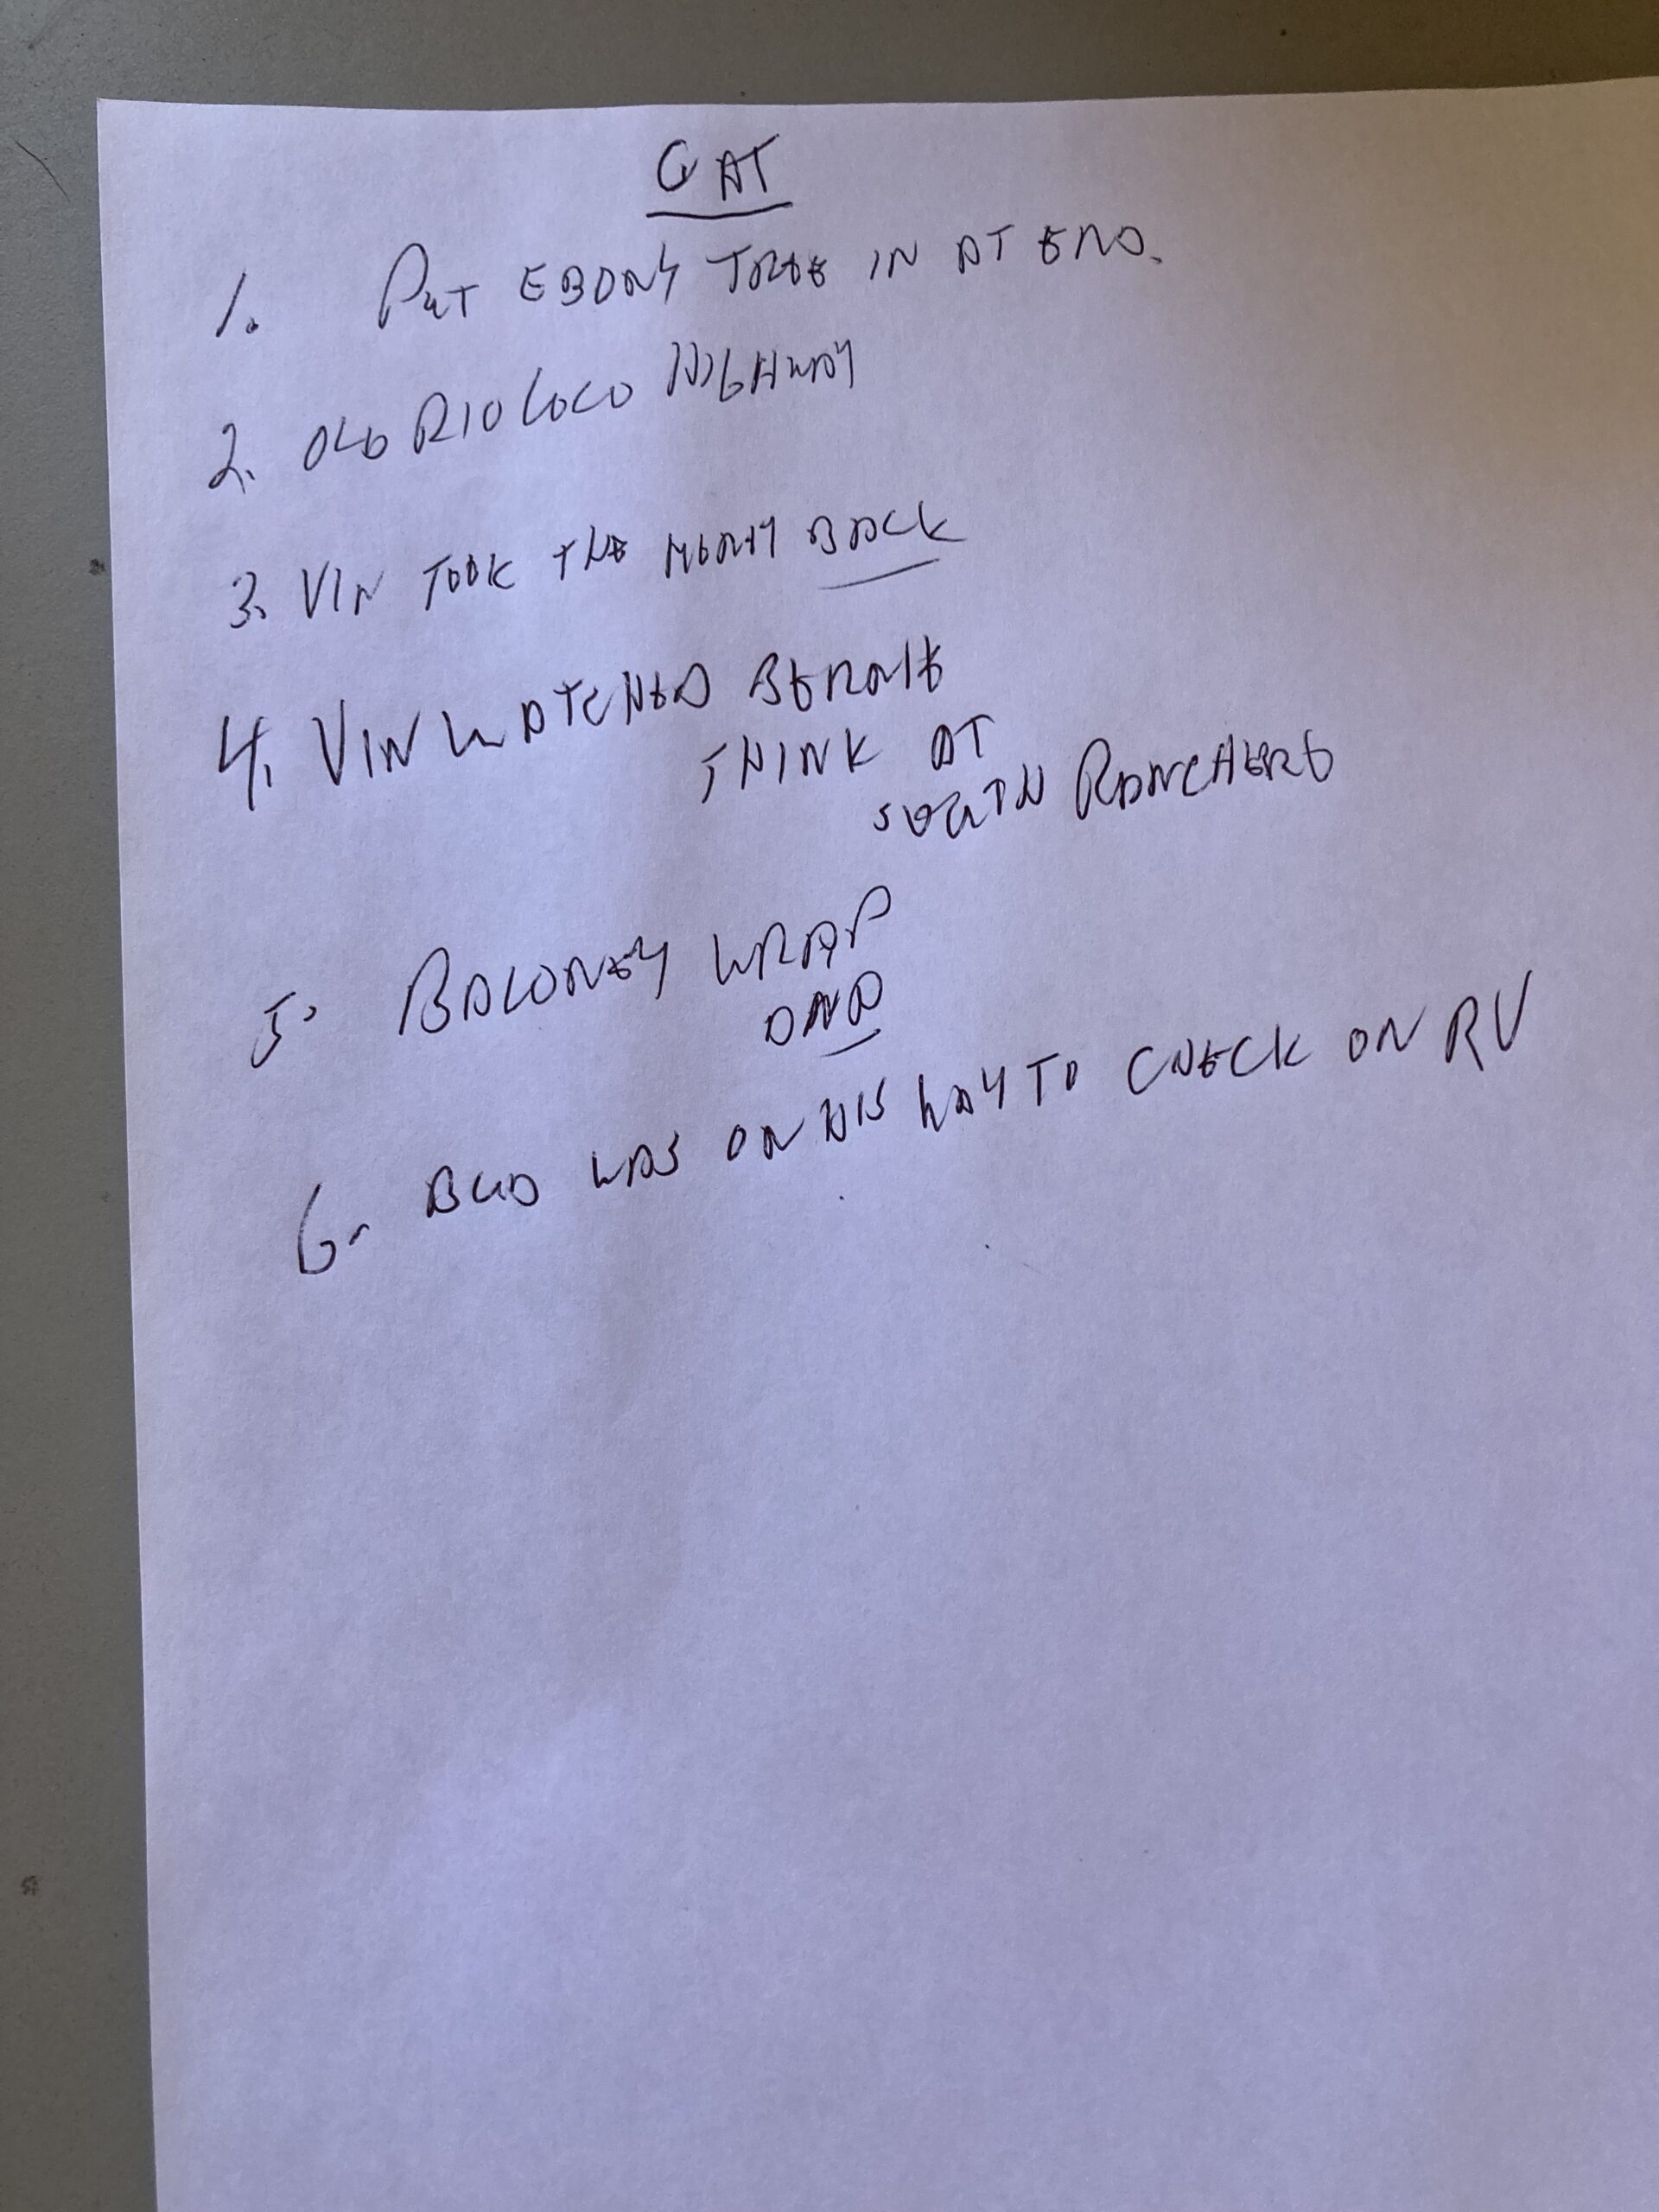 OAT
1. PUT EBONY TREE IN AT END.
2. OLD RIO LOCO HIGHWAY
3. VIN TOOK THE MONEY BACK
4. VIN WATCHED BERNIE
THINK AT
SOUTH RANCHERO
5. BALONEY WRAP
AND
6. BUD WAS ON HIS WAY TO CHECK ON RV